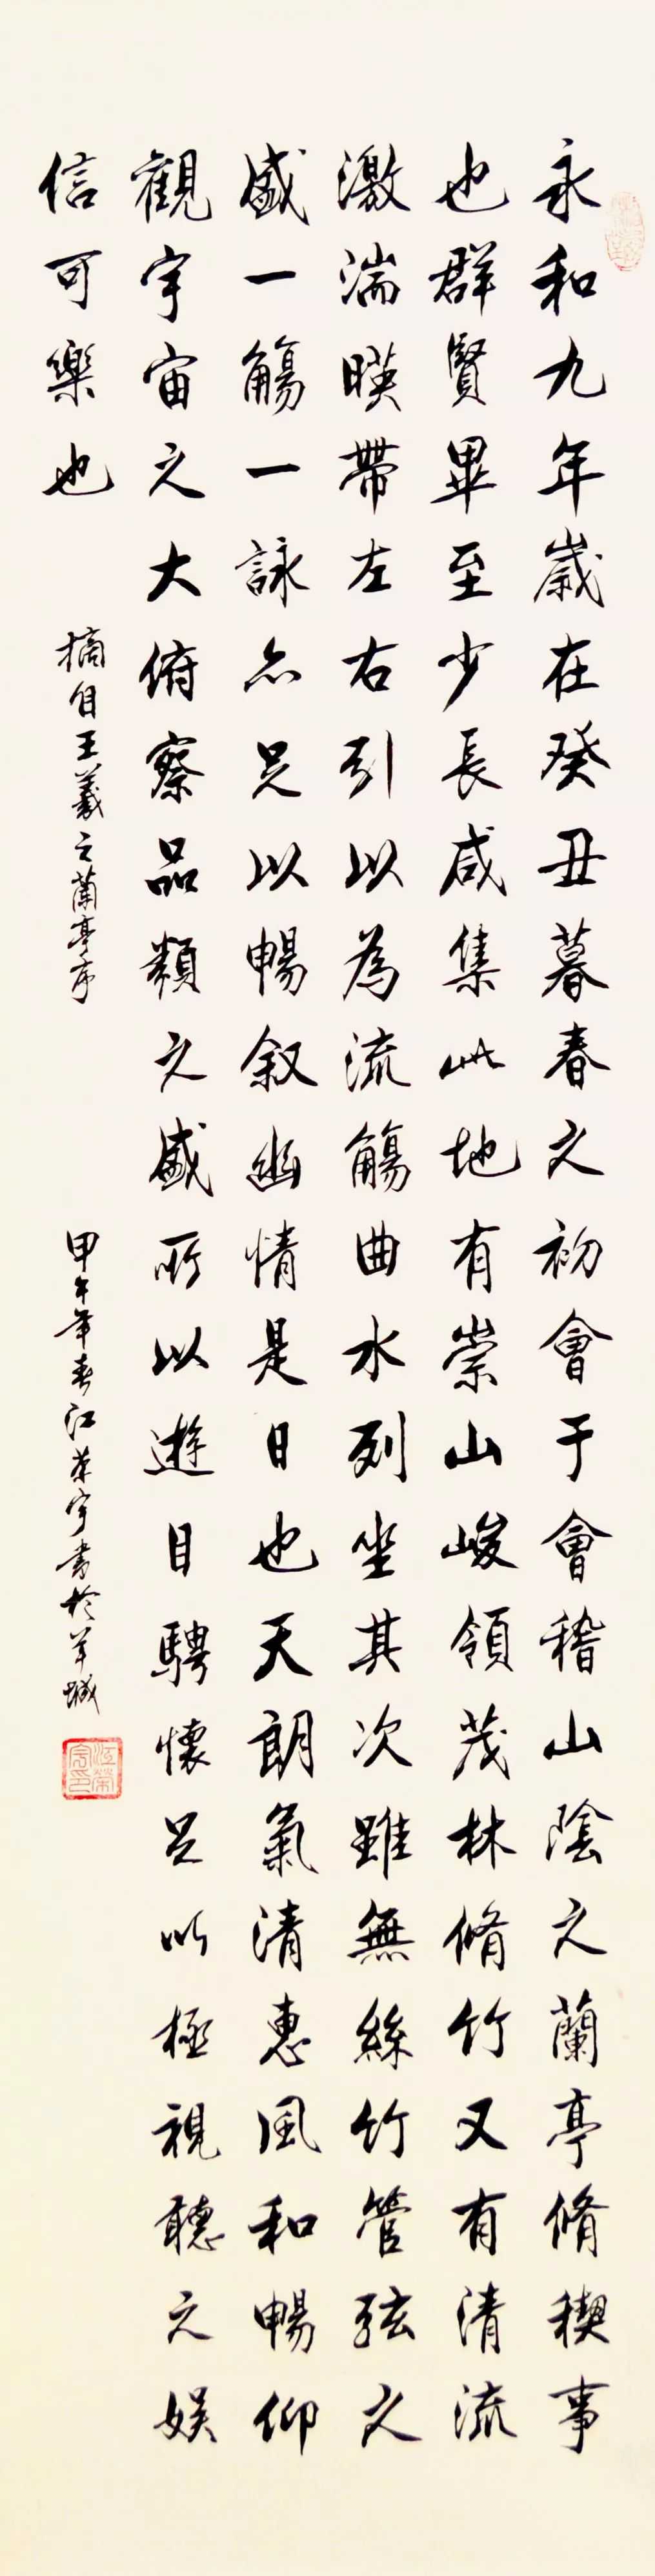 永和九年歲在癸丑暮春之初會于會稽山陰之蘭亭脩稧事
也群賢畢至少長咸集此地有崇山峻領茂林脩竹又有清流
激湍暎帶左右引以為流觴曲水列坐其次雖無絲竹管弦之
盛一觴一詠亦足以暢叙幽情是日也天朗氣清惠風和暢仰
觀宇宙之大俯察品類之盛所以遊目騁懷足以極視聽之娛
信可樂也
摘自王羲之蘭亭序
甲午年春江荣宇書於羊城